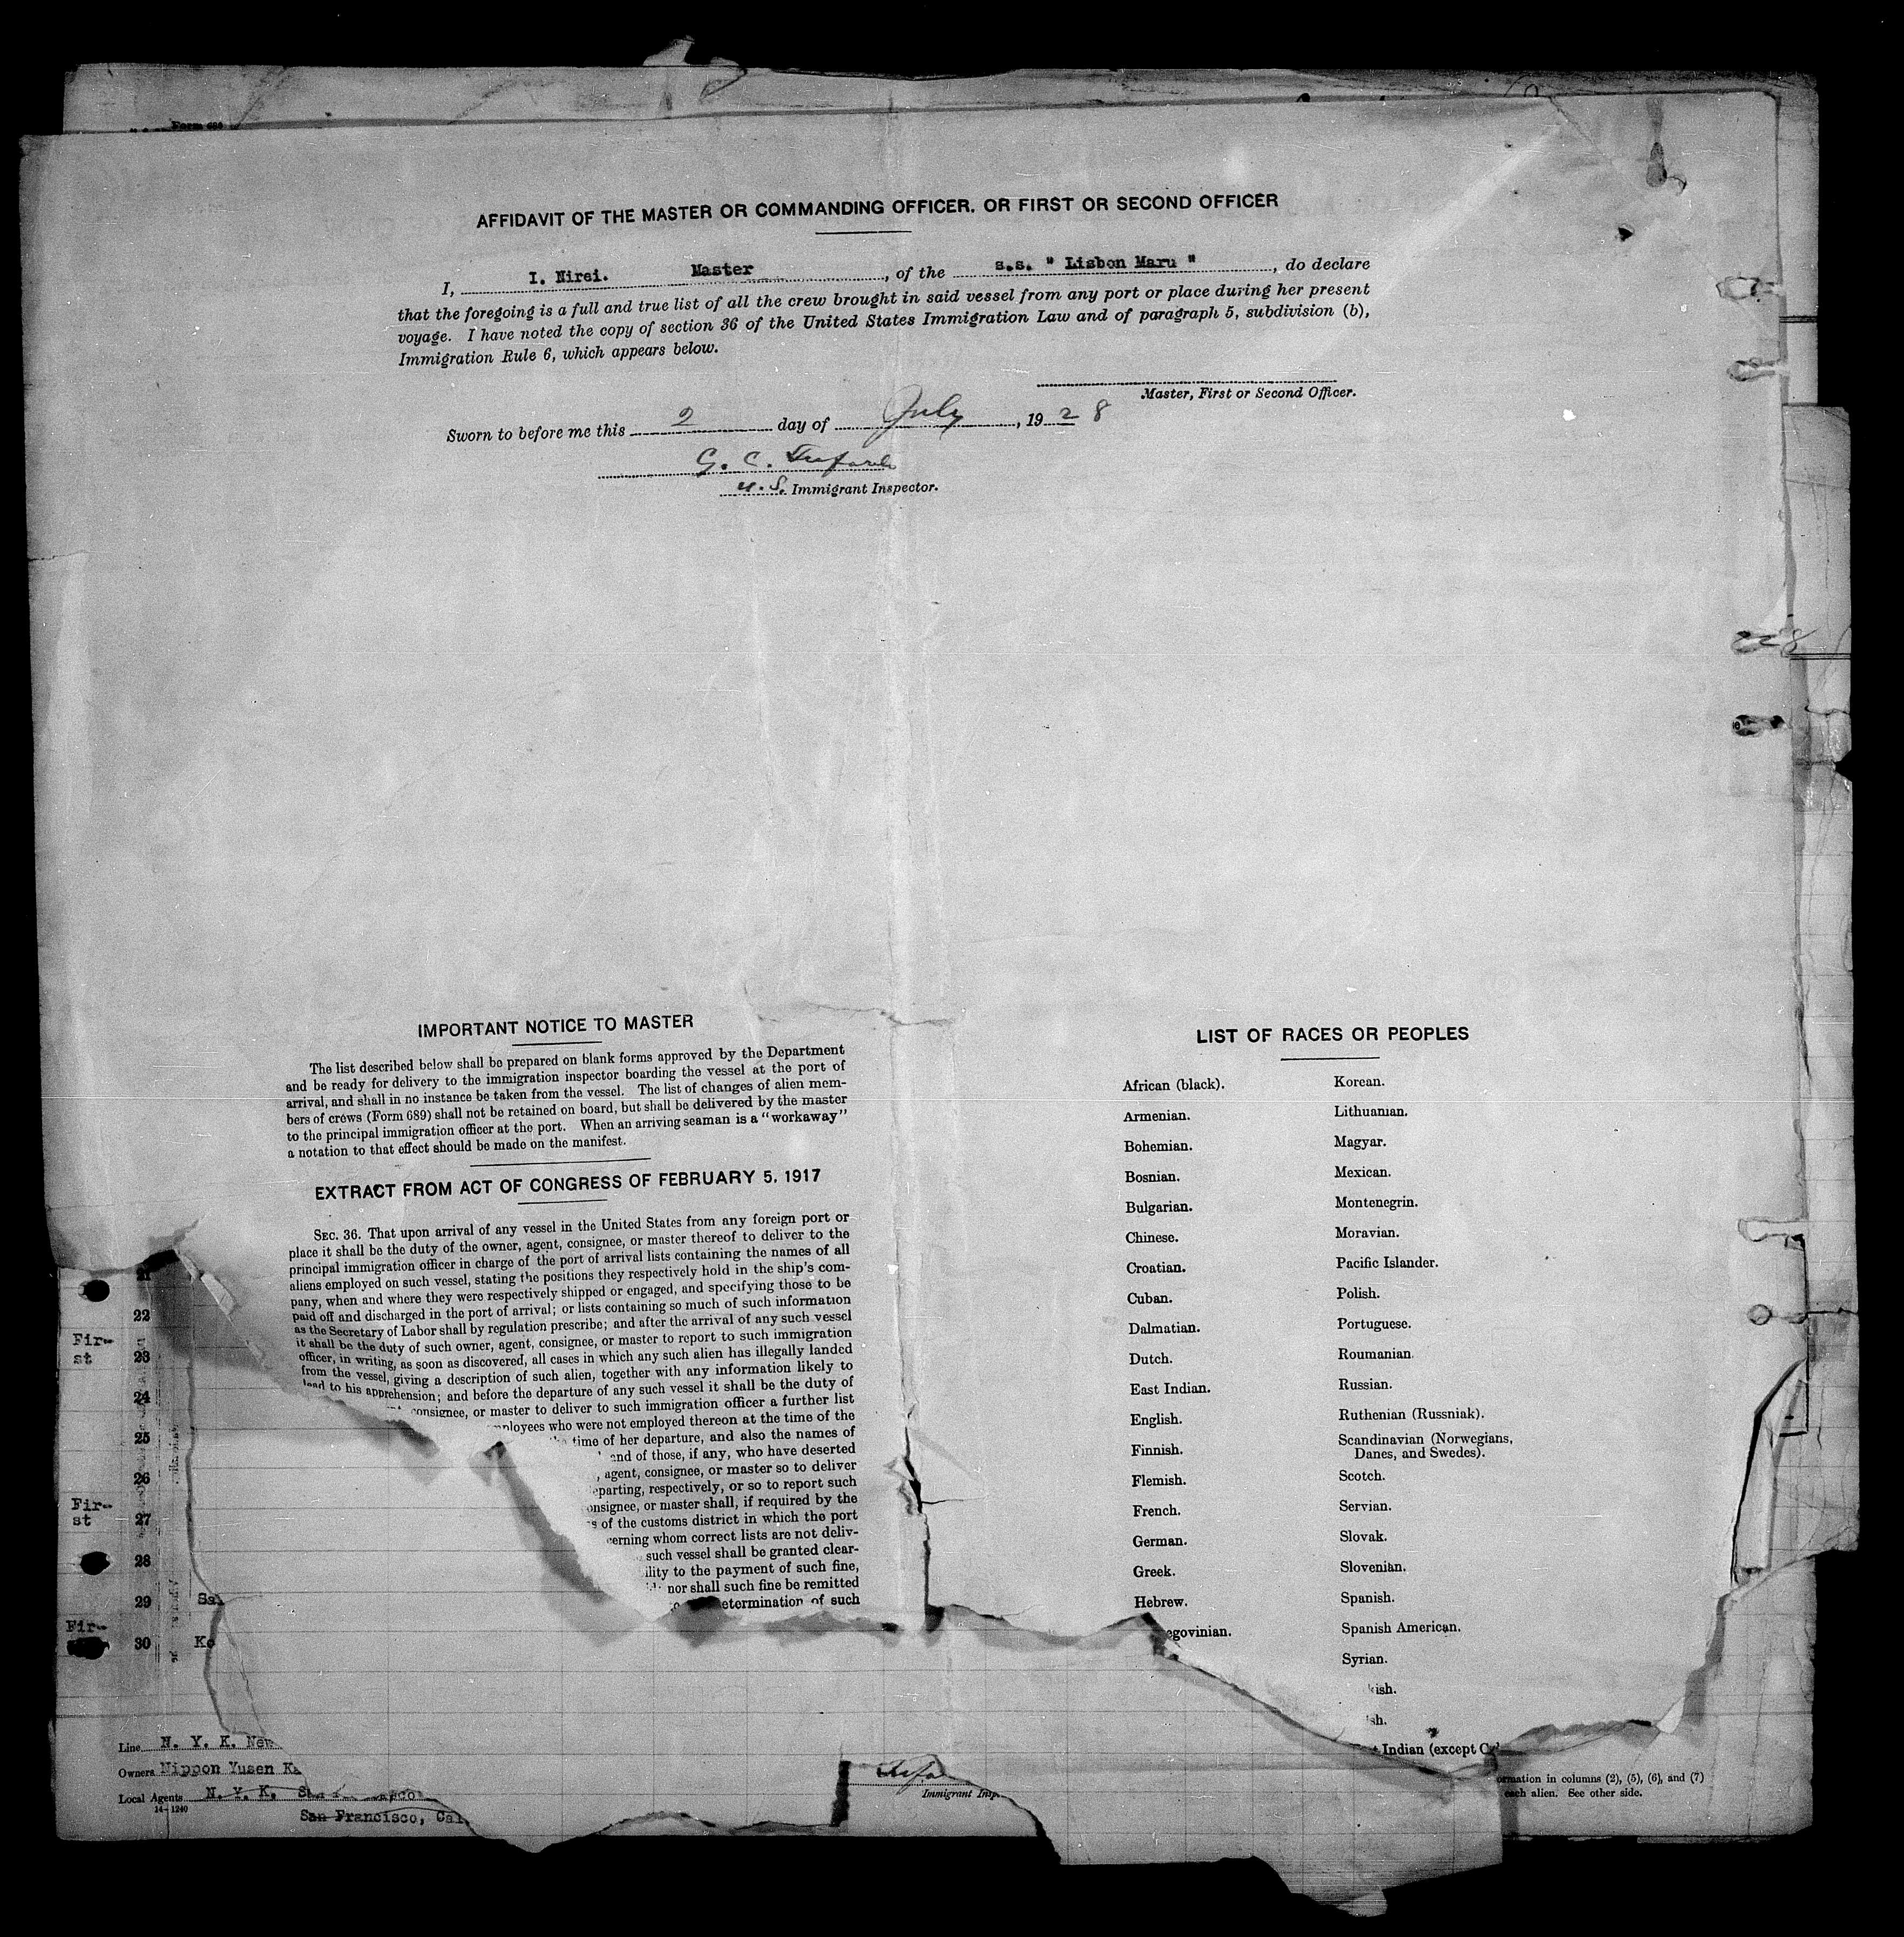 Form 689
AFFIDAVIT OF THE MASTER OR COMMANDING OFFICER, OR FIRST OR SECOND OFFICER
I, I. Nirei. Master, of the s.s. " Lisbon Maru ", do declare
that the foregoing is a full and true list of all the crew brought in said vessel from any port or place during her present
voyage. I have noted the copy of section 36 of the United States Immigration Law and of paragraph 5, subdivision (b),
Immigration Rule 6, which appears below.
Master, First or Second Officer.
Sworn to before me this 2 day of July, 1928
G. C.
U.S. Immigrant Inspector.
228
IMPORTANT NOTICE TO MASTER
The list described below shall be prepared on blank forms approved by the Department
and be ready for delivery to the immigration inspector boarding the vessel at the port of
arrival, and shall in no instance be taken from the vessel. The list of changes of alien mem-
bers of crews (Form 689) shall not be retained on board, but shall be delivered by the master
to the principal immigration officer at the port. When an arriving seaman is a "workaway"
a notation to that effect should be made on the manifest.
EXTRACT FROM ACT OF CONGRESS OF FEBRUARY 5, 1917
SEC. 36. That upon arrival of any vessel in the United States from any foreign port or
place it shall be the duty of the owner, agent, consignee, or master thereof to deliver to the
principal immigration officer in charge of the port of arrival lists containing the names of all
aliens employed on such vessel, stating the positions they respectively hold in the ship's com-
pany, when and where they were respectively shipped or engaged, and specifying those to be
paid off and discharged in the port of arrival; or lists containing so much of such information
as the Secretary of Labor shall by regulation prescribe; and after the arrival of any such vessel
it shall be the duty of such owner, agent, consignee, or master to report to such immigration
officer, in writing, as soon as discovered, all cases in which any such alien has illegally landed
from the vessel, giving a description of such alien, together with any information likely to
lead to his apprehension; and before the departure of any such vessel it shall be the duty of
consignee, or master to deliver to such immigration officer a further list
mployees who were not employed thereon at the time of the
time of her departure, and also the names of
and of those, if any, who have deserted
, agent, consignee, or master so to deliver
eparting, respectively, or so to report such
onsignee, or master shall, if required by the
s of the customs district in which the port
cerning whom correct lists are not deliv-
such vessel shall be granted clear-
ility to the payment of such fine,
nor shall such fine be remitted
etermination of such
LIST OF RACES OR PEOPLES
African (black).
Armenian.
Bohemian.
Bosnian.
Bulgarian.
Chinese.
Croatian.
Cuban.
Dalmatian.
Dutch.
East Indian.
English.
Finnish.
Flemish.
French.
German.
Greek.
Hebrew.
egovinian.
Korean.
Lithuanian.
Magyar.
Mexican.
Montenegrin.
Moravian.
Pacific Islander.
Polish.
Portuguese.
Roumanian.
Russian.
Ruthenian (Russniak).
Scandinavian (Norwegians,
Danes, and Swedes).
Scotch.
Servian.
Slovak.
Slovenian.
Spanish.
Spanish American.
Syrian.
kish.
sh.
Indian (except Cu
21
22
Fir-
st
23
24
25
26
Fir-
st
27
28
29 Sa
Fir-
30 Ko
Line N. Y. K. New
Owners Nippon Yusen Ka
Local Agents N. Y. K. S
14-1240
San Francisco, Cal
Immigrant Insp.
ormation in columns (2), (5), (6), and (7)
each alien. See other side.